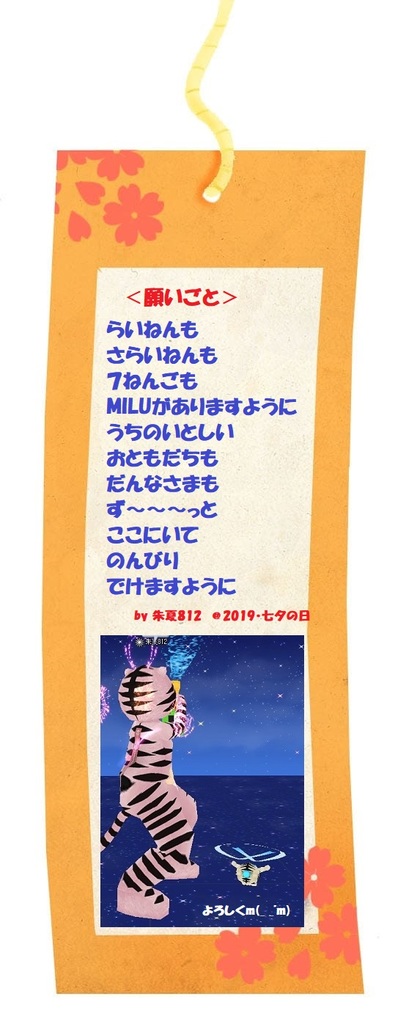 ＜願いごと＞
らいねんも
さらいねんも
７ねんごも
MILUがありますように
うちのいとしい
おともだちも
だんなさまも
ず～～～っと
ここにいて
のんびり
でけますように
by 朱夏812 @2019・七夕の日
よろしくm(_ _"m)